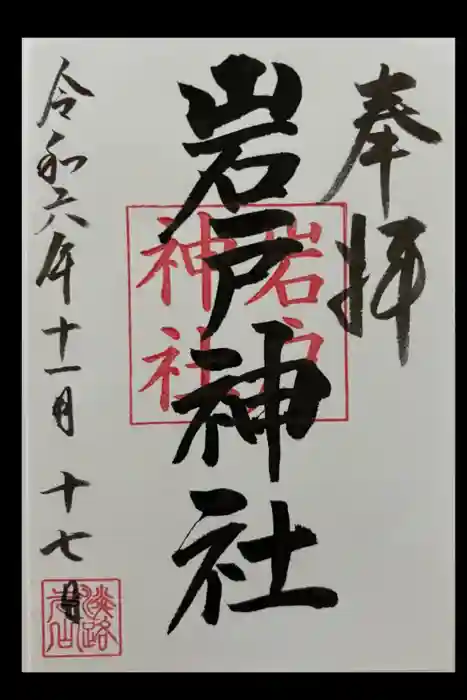 奉拝
岩戸神社
岩戸
神社
令和六年十一月十七日
淡路